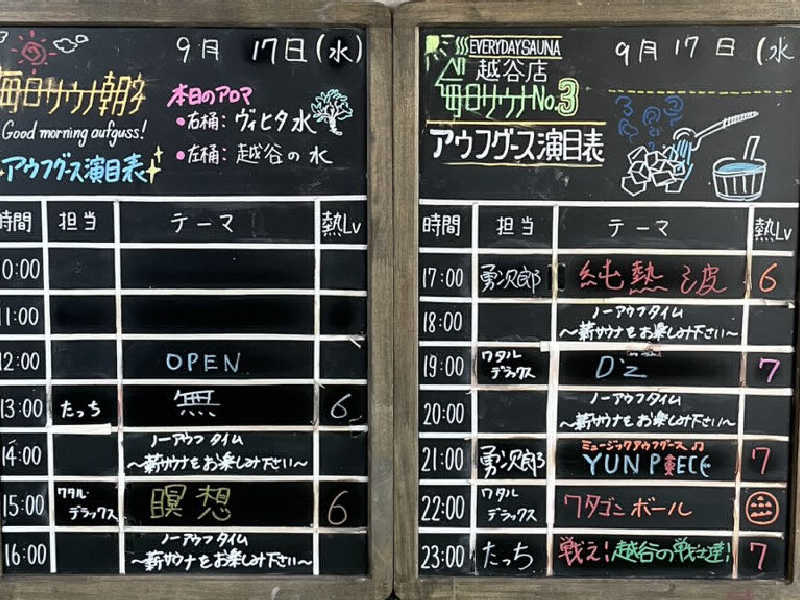 9月 17日(水)
毎日サウナ朝
Good morning aufguss!
アウフグース演目表
本日のアロマ
•右桶:ヴィヒタ水
•左桶:越谷の水
時間 担当 テーマ 熱Lv
0:00
11:00
12:00 OPEN
13:00 たっち 無 6
14:00 ノーアウフタイム
〜薪サウナをお楽しみ下さい〜
15:00 ワタル デラックス 瞑想 6
16:00 ノーアウフタイム
〜薪サウナをお楽しみ下さい〜
EVERYDAY SAUNA
越谷店
毎日サウナNo.3
アウフグース演目表
9月17日(水
時間 担当 テーマ 熱Lv
17:00 勇次郎 純熱波 6
18:00 ノーアウフタイム
〜薪サウナをお楽しみ下さい〜
19:00 ワタル デラックス D'z 7
20:00 ノーアウフタイム
〜薪サウナをお楽しみ下さい〜
21:00 勇次郎 ミュージックアウフグース♫
YUN PIECE 7
22:00 ワタル デラックス ワタゴンボール
23:00 たっち 戦え!越谷の戦士達! 7